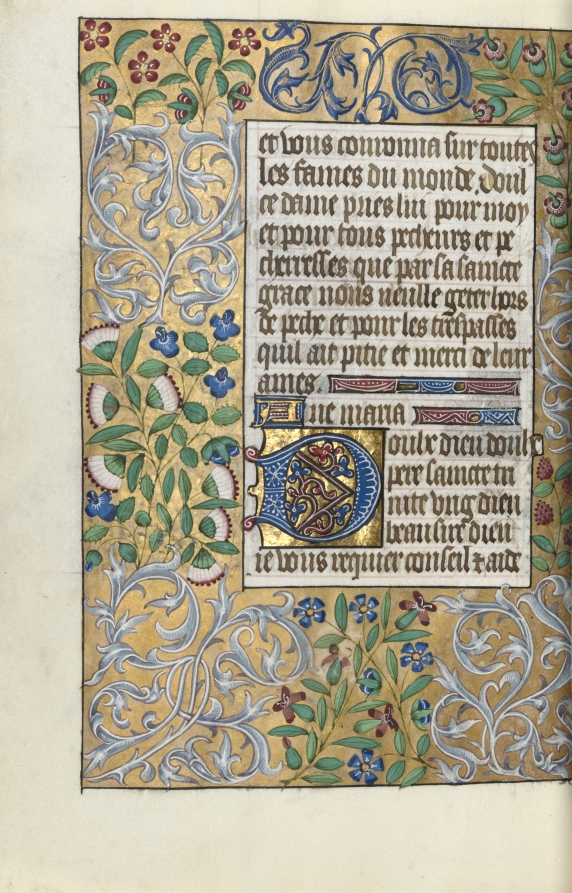 et vous couronna sur toutes
les fames du monde doul
ce dame pries luy pour moy
et pour tous pecheurs et pe
cheresses que par sa saincte
grace nous veulle geter hors
de peche et pour les trespasses
quil ait pitie et merci de leur
ames.
Aue maria
Doulx dieu doulx
pere saincte tri
nite vng dieu
beau sire dieu
ie vous requier conseil ⁊ aide